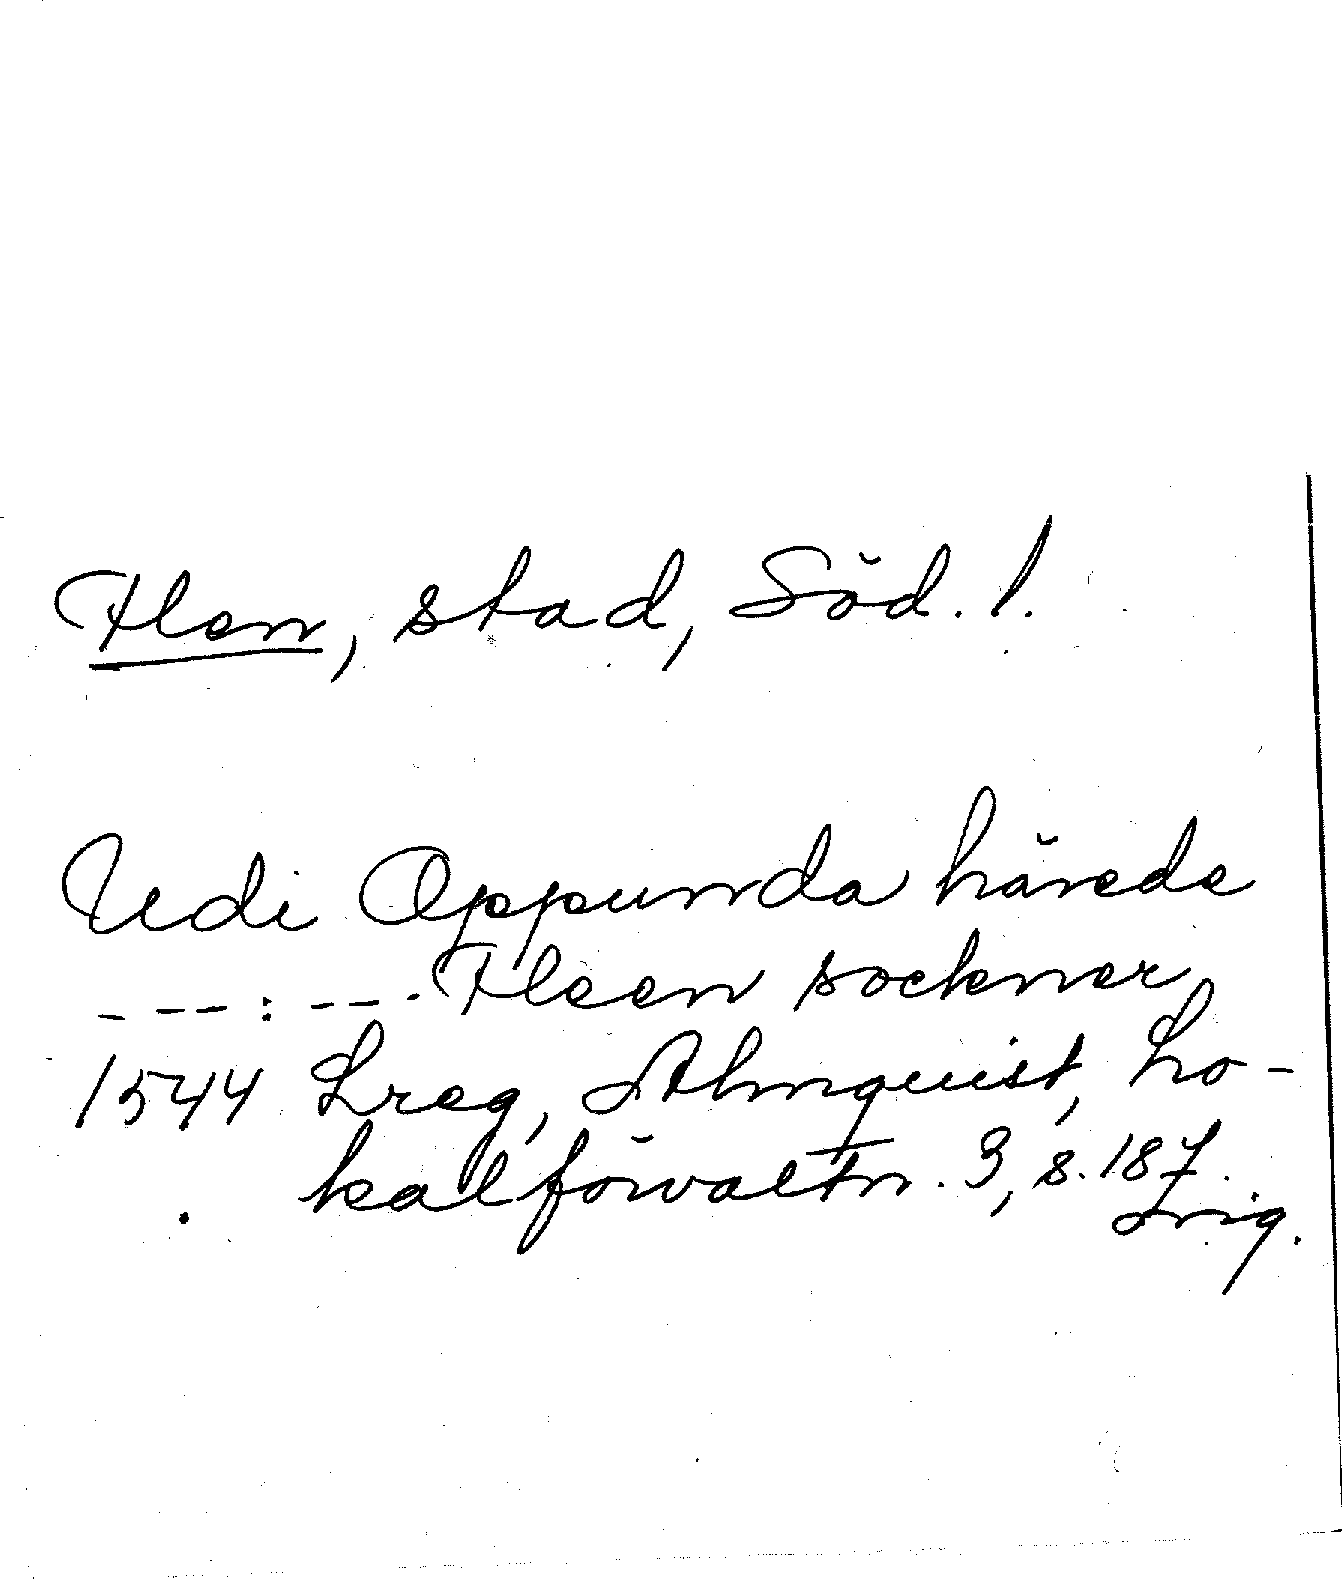 Flen, stad, Söd. l.
Udi Oppunda härede
- --- : --- . Fleen sockner
1544 Lreg, Almquist, Lo-
kalförvaltn. 3, s. 187.
Orig.